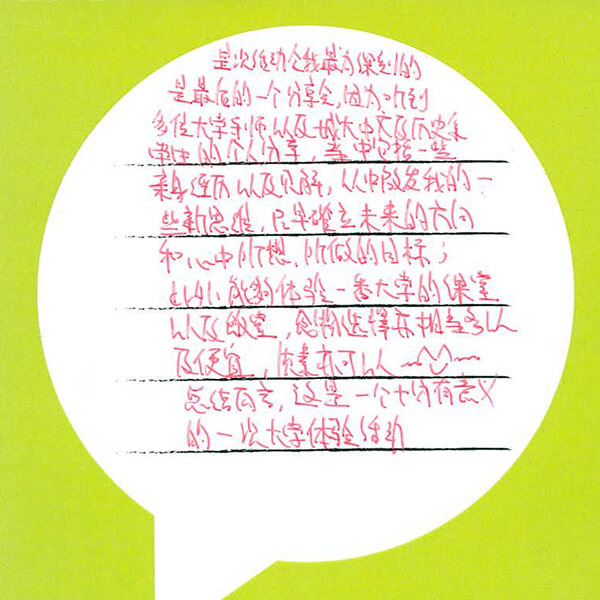 是次活动令我最为深刻的
是最后的一个分享会,因为听到
多位大学导师以及城大中文及历史系
的个人分享,当中包括一些
亲身经历以及见解,从中启发我的一
些新思维,尽早確立未来的方向
和心中所想、所做的目标;
此外能夠体验一番大学的课室
以及饭堂,食物选择亦相当多以
及便宜,味素亦可以
总结而言,这是一个十分有意义
的一次大学体验活动